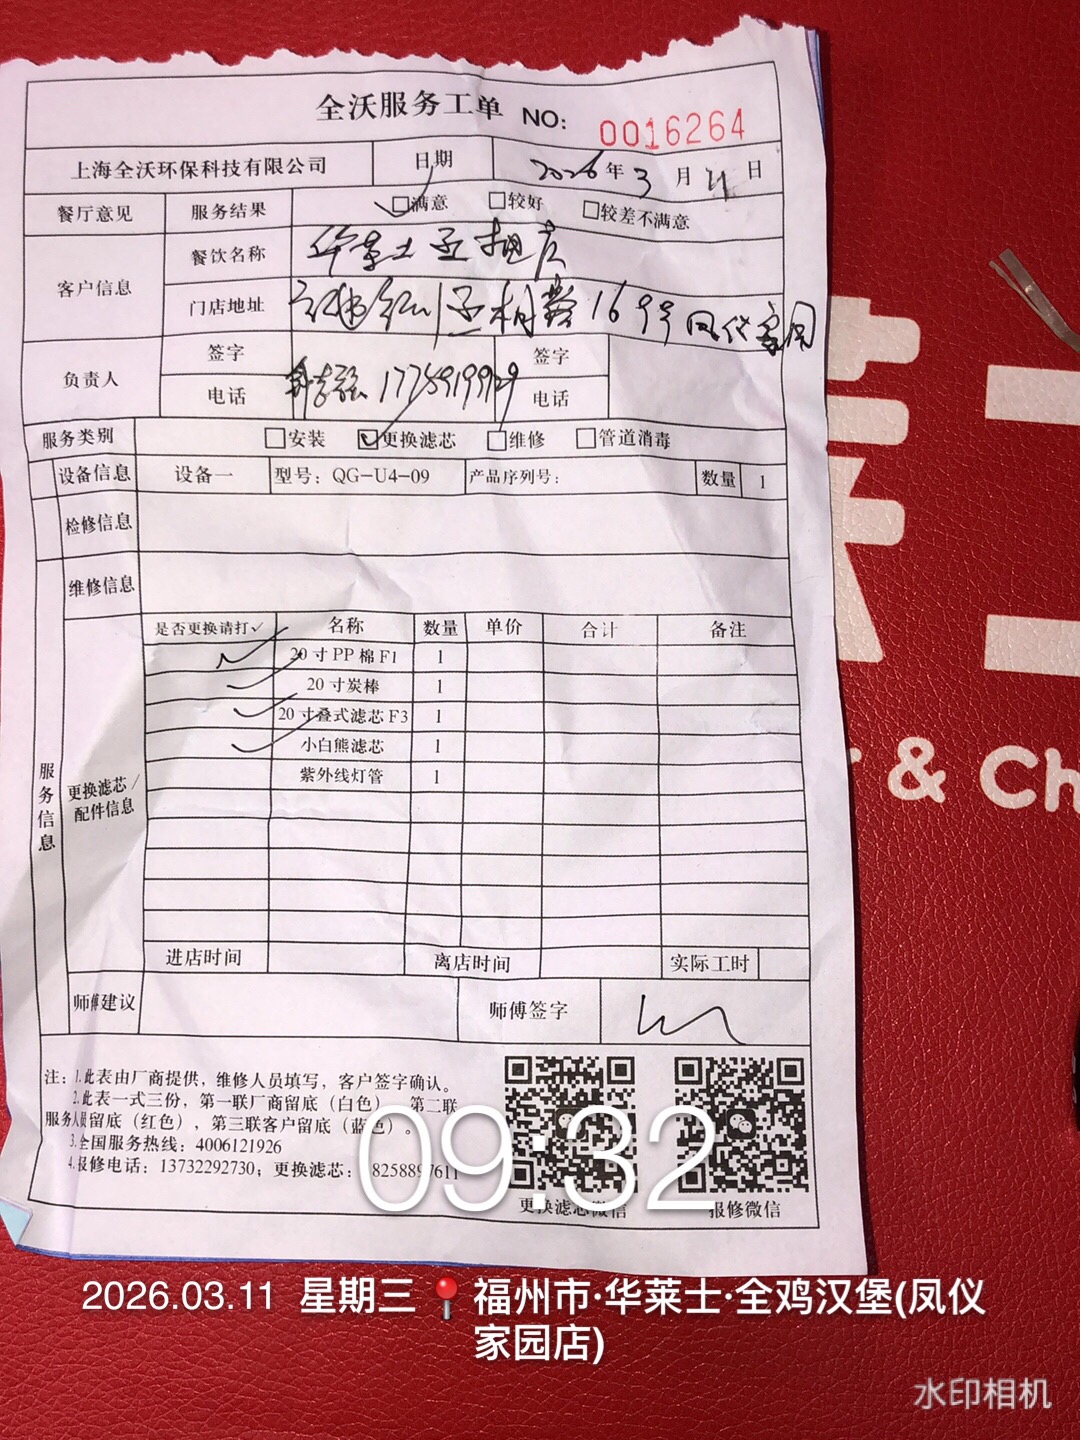 全沃服务工单 NO: 0016264
上海全沃环保科技有限公司 日期 2026年3月11日
餐厅意见 服务结果 ☑满意 □较好 □较差不满意
客户信息 餐饮名称 华莱士 店
门店地址 169号凤仪家园
负责人 签字 签字
电话 17759199929 电话
服务类别 □安装 ☑更换滤芯 □维修 □管道消毒
设备信息 设备一 型号: QG-U4-09 产品序列号: 数量 1
检修信息
维修信息
服务信息
更换滤芯/配件信息
是否更换请打✓ 名称 数量 单价 合计 备注
✓ 20寸PP棉F1 1
✓ 20寸炭棒 1
✓ 20寸叠式滤芯F3 1
✓ 小白熊滤芯 1
紫外线灯管 1
进店时间 离店时间 实际工时
师傅建议 师傅签字
注: 1.此表由厂商提供，维修人员填写，客户签字确认。
2.此表一式三份，第一联厂商留底（白色），第二联
服务人员留底（红色），第三联客户留底（蓝色）。
3.全国服务热线: 4006121926
4.报修电话: 13732292730；更换滤芯: 8258897611
更换滤芯微信 报修微信
09:32
2026.03.11 星期三 福州市·华莱士·全鸡汉堡(凤仪
家园店)
水印相机
& Ch